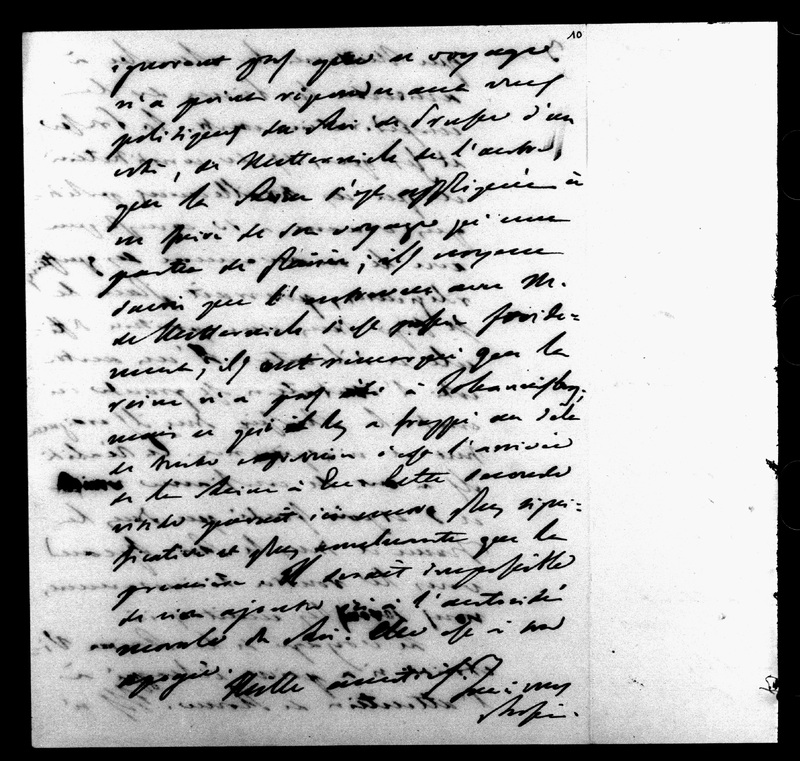 10
ignorent pas que ce voyage
n'a point répondu aux vues
politiques du Roi de Prusse d'un
côté, de Metternich de l'autre
que la Reine s'est appliquée à
en faire de son voyage qu'une
partie de plaisir; ils croyent
savoir que l'entrevue avec M.
de Metternich s'est passée froide=
ment; ils ont remarqué que la
reine n'a pas été à Johannisberg;
mais ce qui les a frappé au delà
de toute expression c'est l'arrivée
de la Reine à Eu. Cette seconde
visite paraît ici encore plus signi=
ficative et plus concluante que la
première. Il serait impossible
de rien ajouter ici à l'autorité
morale du Roi. Elle est à son
apogée.
Mille amitiés